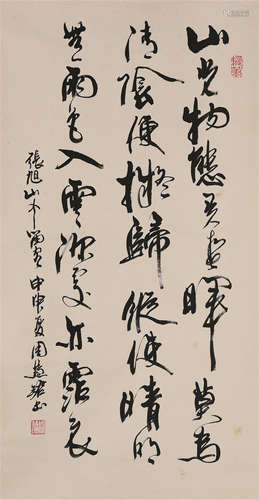 山光物態弄春暉莫為
清陰便擬歸縱使晴明
無雨色入雲深處亦霑衣
張旭山中留客甲申夏周慧珺書